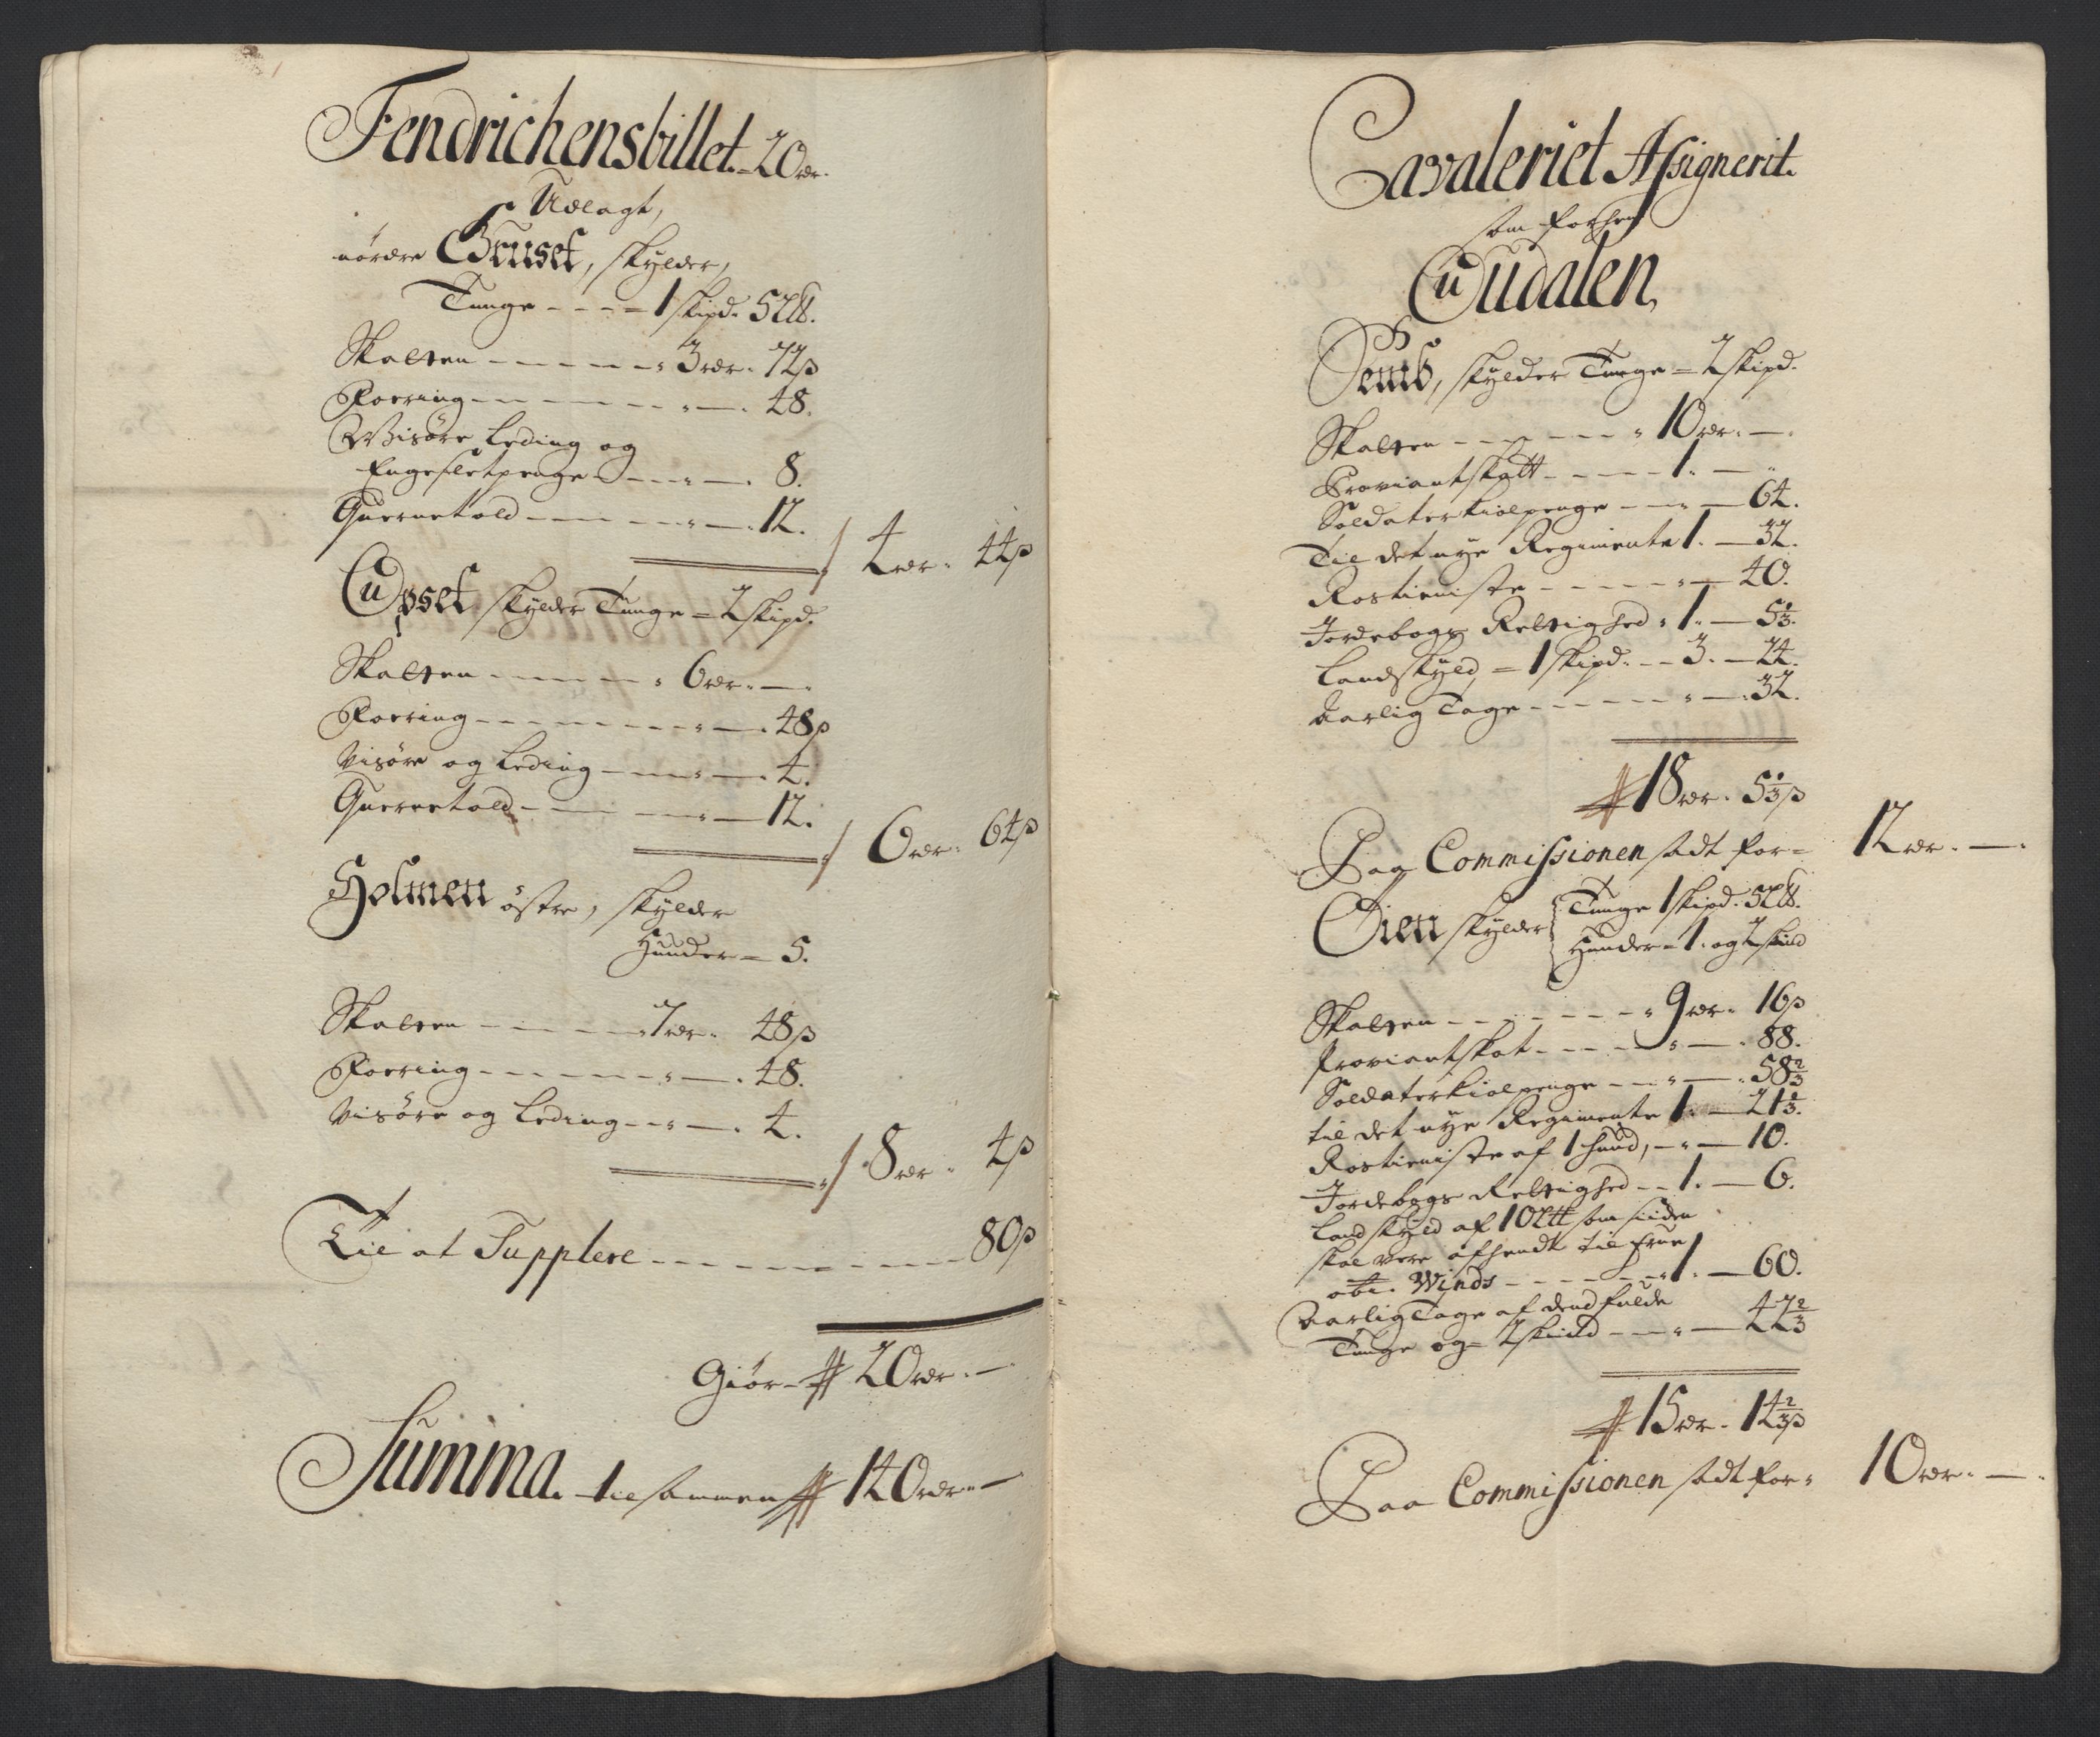 Fendrichens billet. - 20 rdr.
Udlagt,
nordre Gruset, skylder,
Tunge - - - = 1 skipd. 5 L℔.
Skatten - - - - - 3 rdr. 72 ß
Foering - - - - - - — . 48.
Wisøre Leding og
Engesletpenge - - - — . 8.
Quernetold - - - - — . 12.
4 rdr. 44 ß
Opset skylder Tunge = 2 skipd.
Skatten - - - - - 6 rdr. —.
Foering - - - - - - — . 48 ß
Visøre og Leding - - - — . 4.
Quernetold - - - - — 12.
6 rdr. 64 ß
Holmen østre, skylder
Hunder = 5.
Skatten - - - - - 7 rdr. 48 ß
Foering - - - - - - — . 48.
Visøre og Leding - - - — . 4.
8 rdr. 4 ß
Til at Supplere - - - - - - - - 80 ß
Giør - 20 rdr. —
Summa. tilsammen 140 rdr. —
Cavaleriet Assignerit.
som forhen
Qudalen,
Semb, skylder Tunge = 2 skipd.
Skatten - - - - - - 10 rdr. —.
Proviantskatt - - - - 1. — "
Soldaterkiolpenge - - - — 64.
Til det nye Regimente 1. — 32.
Rostieniste - - - - - — 40.
Jordebogs Rettighed . 1. — 5 1/3.
Landskyld, = 1 skipd. - - 3. — 24.
Aarlig Tage - - - - - — . 32.
18 rdr. 5 1/3 ß
Paa Commissionen sadt for = 12 rdr. —.
Öien skylder Tunge 1 skipd. 5 L℔.
Hunder = 1. og 2 skind
Skatten - - - - - - 9 rdr. 16 ß
Proviantskat - - - - — . 88.
Soldaterkiolpenge - - - — . 58 2/3
til det nye Regimente 1. — 21 1/3.
Rostieniste af 1 hund, - - — 10.
Jordebogs Rettighed - - 1. — 6.
Landskyld af 10 L℔ som siiden
skal vere afhendt til Frue
Winds - - - - - 1. — 60.
Aarlig Tage af dend fulde
Tunge og 2 skind - - - — 42 2/3
15 rdr. 14 2/3 ß
Paa Commissionen sadt for = 10 rdr. —.